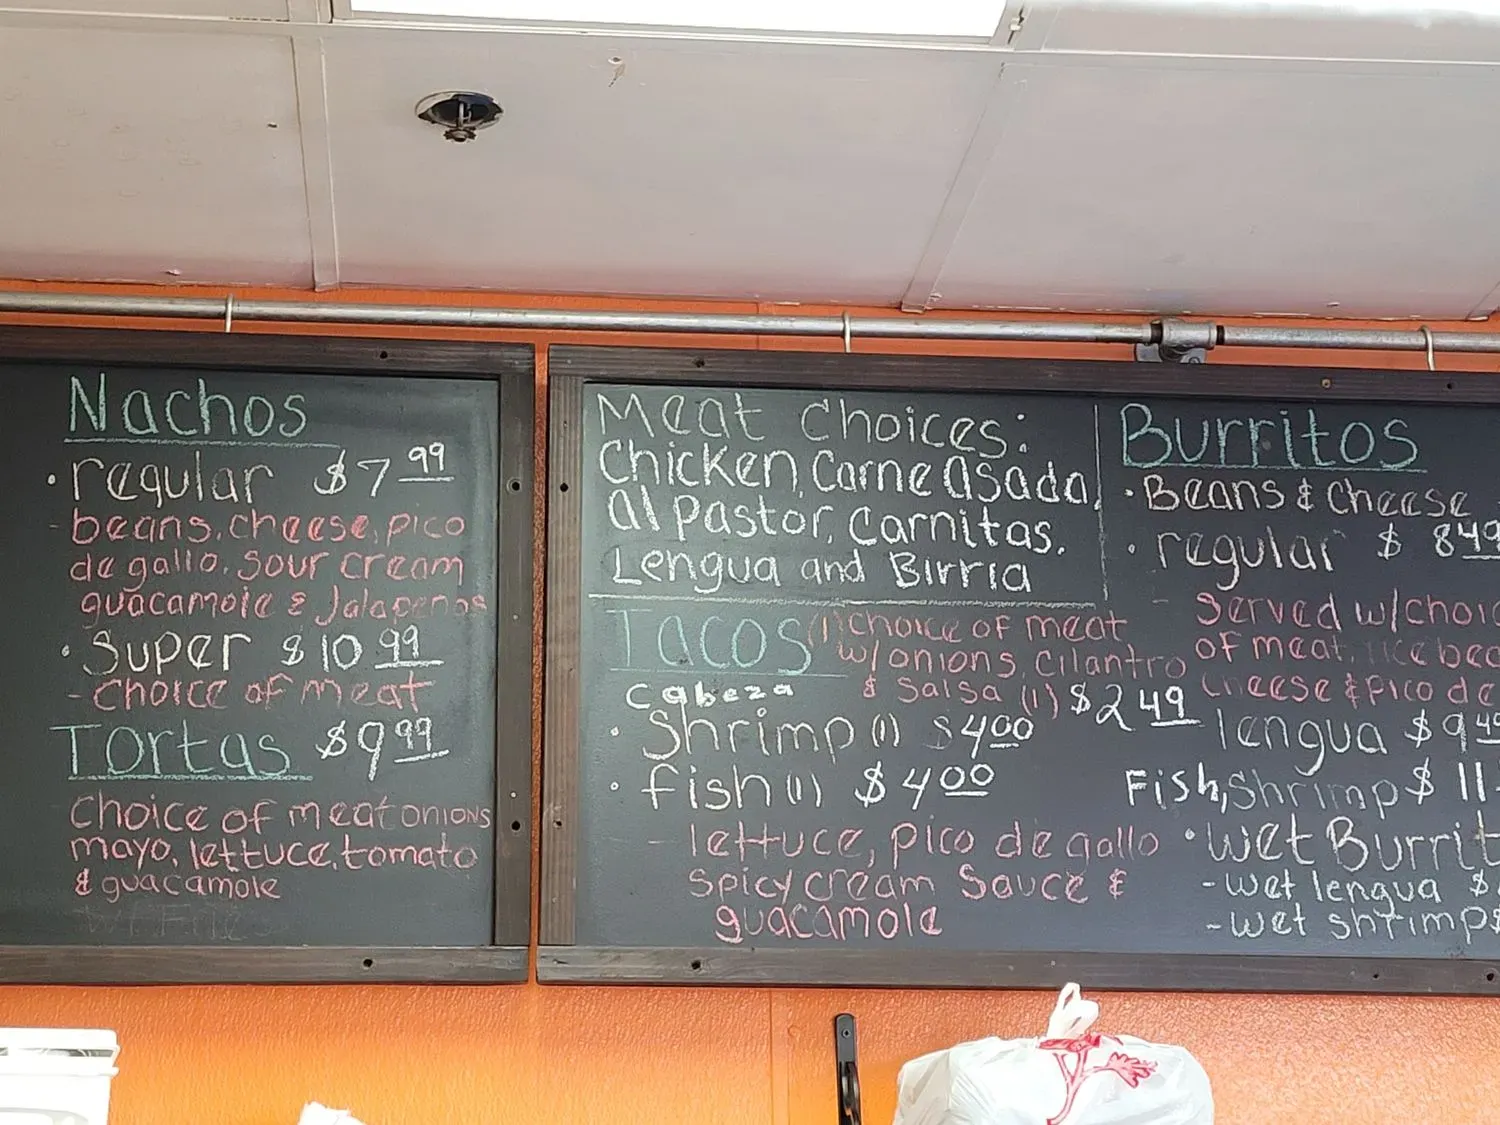 Nachos
• regular $7.99
- beans, cheese, pico
de gallo, sour cream
guacamole & Jalapenos
• Super $10.99
- choice of meat
Tortas $9.99
Choice of meat onions
mayo, lettuce, tomato
& guacamole
Meat choices:
Chicken, Carne Asada,
al Pastor, Carnitas,
Lengua and Birria
Tacos (1) choice of meat
w/onions, cilantro
& Salsa (1) $2.49
cabeza
• Shrimp (1) $4.00
• fish (1) $4.00
- lettuce, pico de gallo
spicy cream sauce &
guacamole
Burritos
• Beans & cheese
• regular $8.49
- Served w/choic
of meat, rice bea
cheese & pico de
lengua $9.49
Fish, Shrimp $11.
• Wet Burrit
- wet lengua $
- wet shrimp $